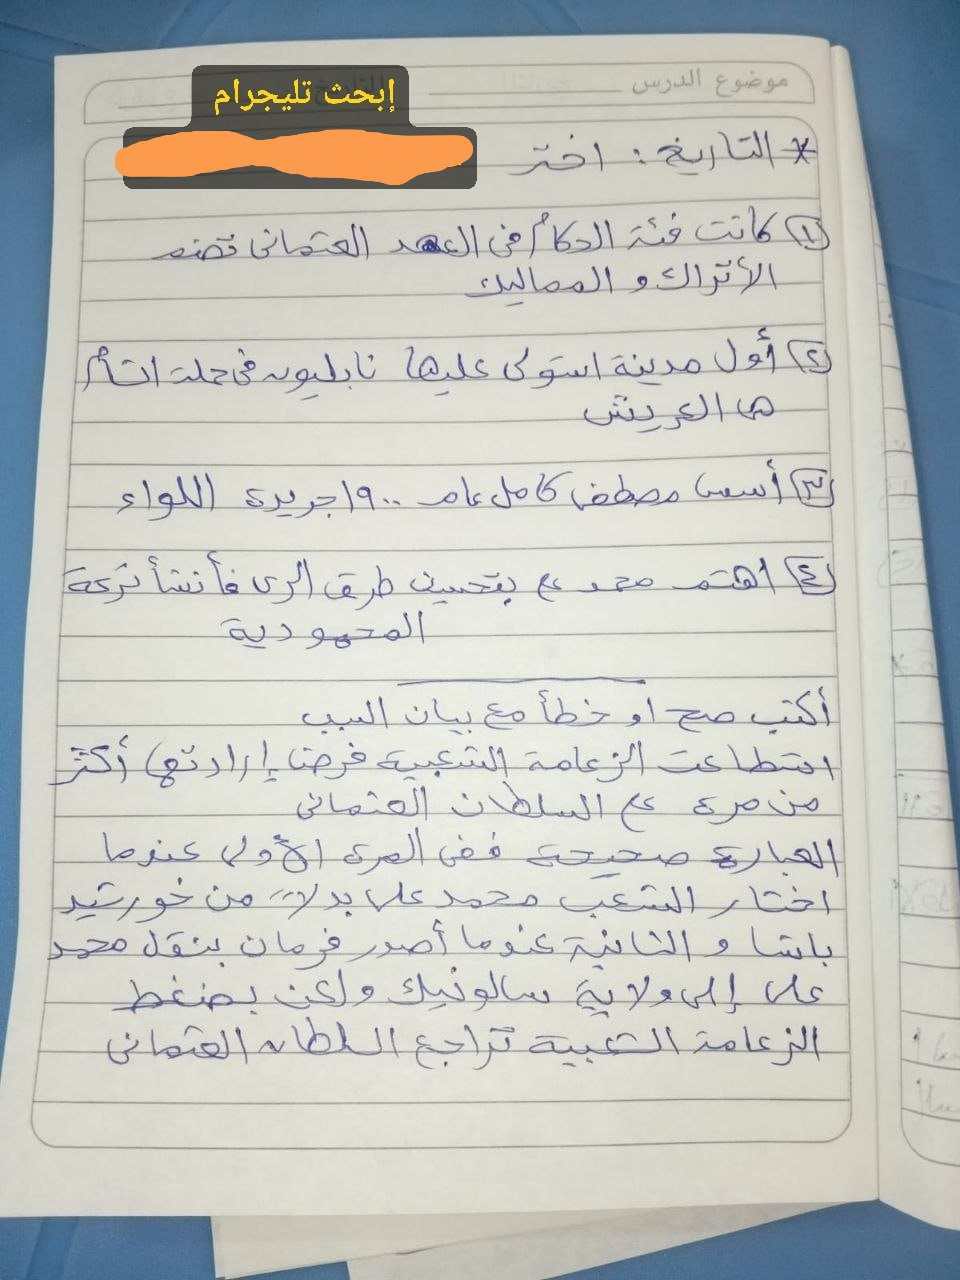 موضوع الدرس
إبحث تليجرام
* التاريخ : اختر
(١) كانت فئة الحكام فى العهد العثمانى تضم
الأتراك و المماليك
(٢) أول مدينة استولى عليها نابليون فى حملة الشام
هى العريش
(٣) أسس مصطفى كامل عام ١٩٠٠ جريدة اللواء
(٤) اهتم محمد على بتحسين طرق الرى فأنشأ ترعة
المحمودية
أكتب صح او خطأ مع بيان السبب
استطاعت الزعامة الشعبية فرض إرادتها أكثر
من مرة على السلطان العثمانى
العبارة صحيحة ففى المرة الأولى عندما
اختار الشعب محمد على بدلاً من خورشيد
باشا و الثانية عندما أصدر فرمان بنقل محمد
على إلى ولاية سالونيك ولكن بضغط
الزعامة الشعبية تراجع السلطان العثمانى